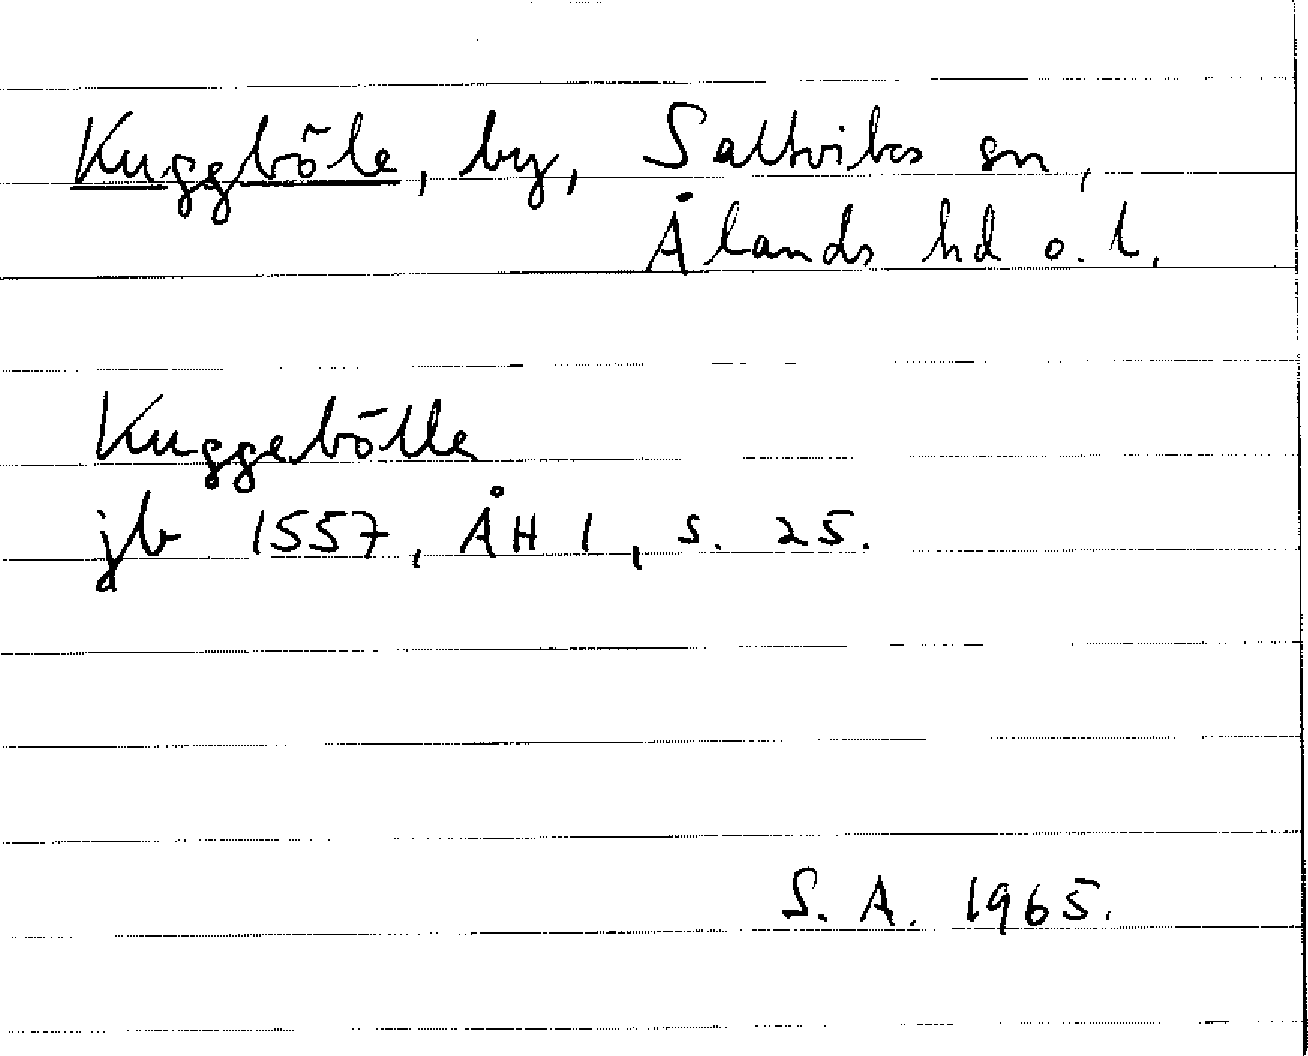 Kuggböle, by, Saltviks sn,
Ålands hd o. l.
Kuggebölle
jb 1557, ÅH 1, s. 25.
S. A. 1965.